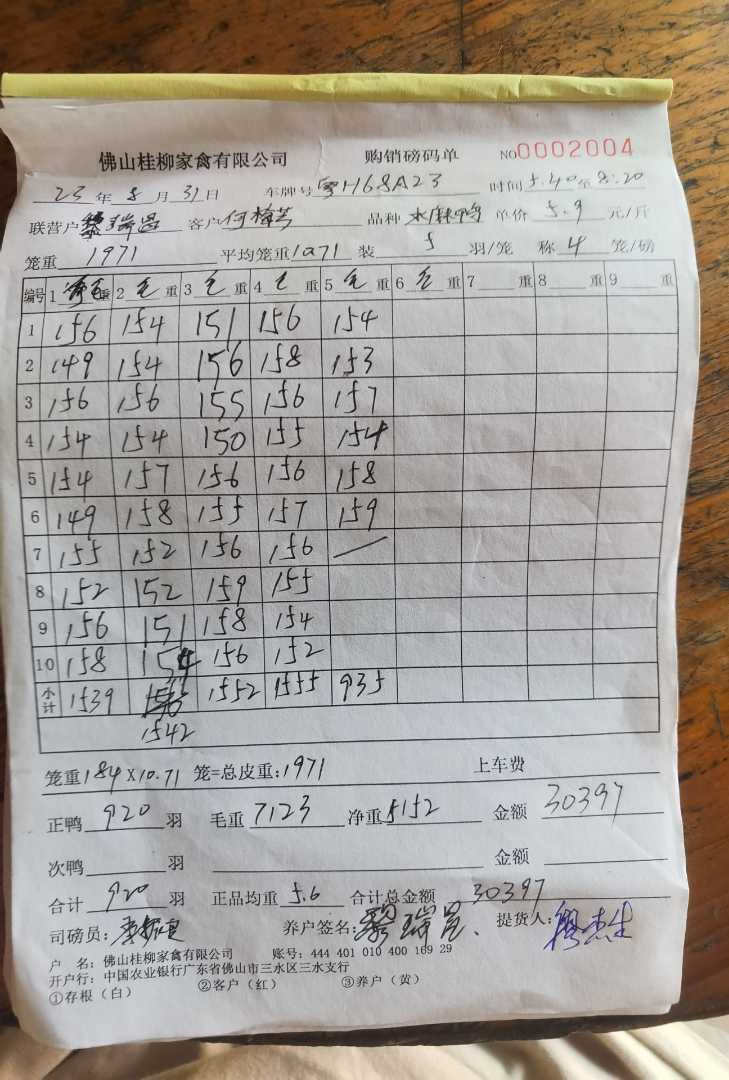 佛山桂柳家禽有限公司 购销磅码单 NO0002004
23年8月31日 车牌号粤H68A23 时间5.40至8.20
联营户黎瑞昌 客户何梅芳 品种水麻鸭 单价5.9元/斤
笼重1971 平均笼重1071 装5羽/笼 称4笼/磅
编号 1毛重 2毛重 3毛重 4毛重 5毛重 6毛重 7重 8重 9重
1 156 154 151 156 154
2 149 154 156 158 153
3 156 156 155 156 157
4 154 154 150 155 154
5 154 157 156 156 158
6 149 158 155 157 159
7 155 152 156 156
8 152 152 159 155
9 156 151 158 154
10 158 154 156 152
小计 1539 1552 1555 935
1542
笼重184×10.71笼=总皮重:1971 上车费
正鸭920羽 毛重7123 净重5152 金额30397
次鸭 羽 金额
合计920羽 正品均重5.6 合计总金额30397
司磅员: 养户签名:黎瑞昌. 提货人:
户 名:佛山桂柳家禽有限公司 账号:444 401 010 400 169 29
开户行:中国农业银行广东省佛山市三水区三水支行
①存根(白) ②客户(红) ③养户(黄)